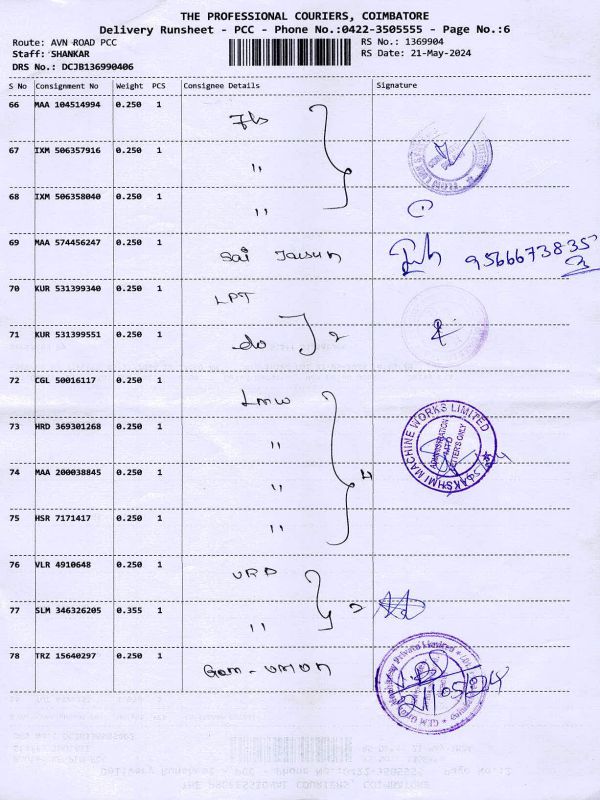 THE PROFESSIONAL COURIERS, COIMBATORE
Delivery Runsheet - PCC - Phone No.:0422-3505555 - Page No.:6
Route: AVN ROAD PCC
RS No.: 1369904
Staff: SHANKAR
RS Date: 21-May-2024
DRS No.: DCJB136990406
S No Consignment No Weight PCS Consignee Details Signature
66 MAA 104514994 0.250 1
67 IXM 506357916 0.250 1 ,,
68 IXM 506358040 0.250 1 ,,
69 MAA 574456247 0.250 1 Sai 9566673835
70 KUR 531399340 0.250 1 LPT
71 KUR 531399551 0.250 1 do 2
72 CGL 50016117 0.250 1 Lmw
73 HRD 369301268 0.250 1 ,,
74 MAA 200038845 0.250 1 ,, 4
75 HSR 7171417 0.250 1 ,,
LAKSHMI MACHINE WORKS LIMITED
76 VLR 4910648 0.250 1 URD
77 SLM 346326205 0.355 1 ,, 2
78 TRZ 15640297 0.250 1 Gem-union
21/05/24